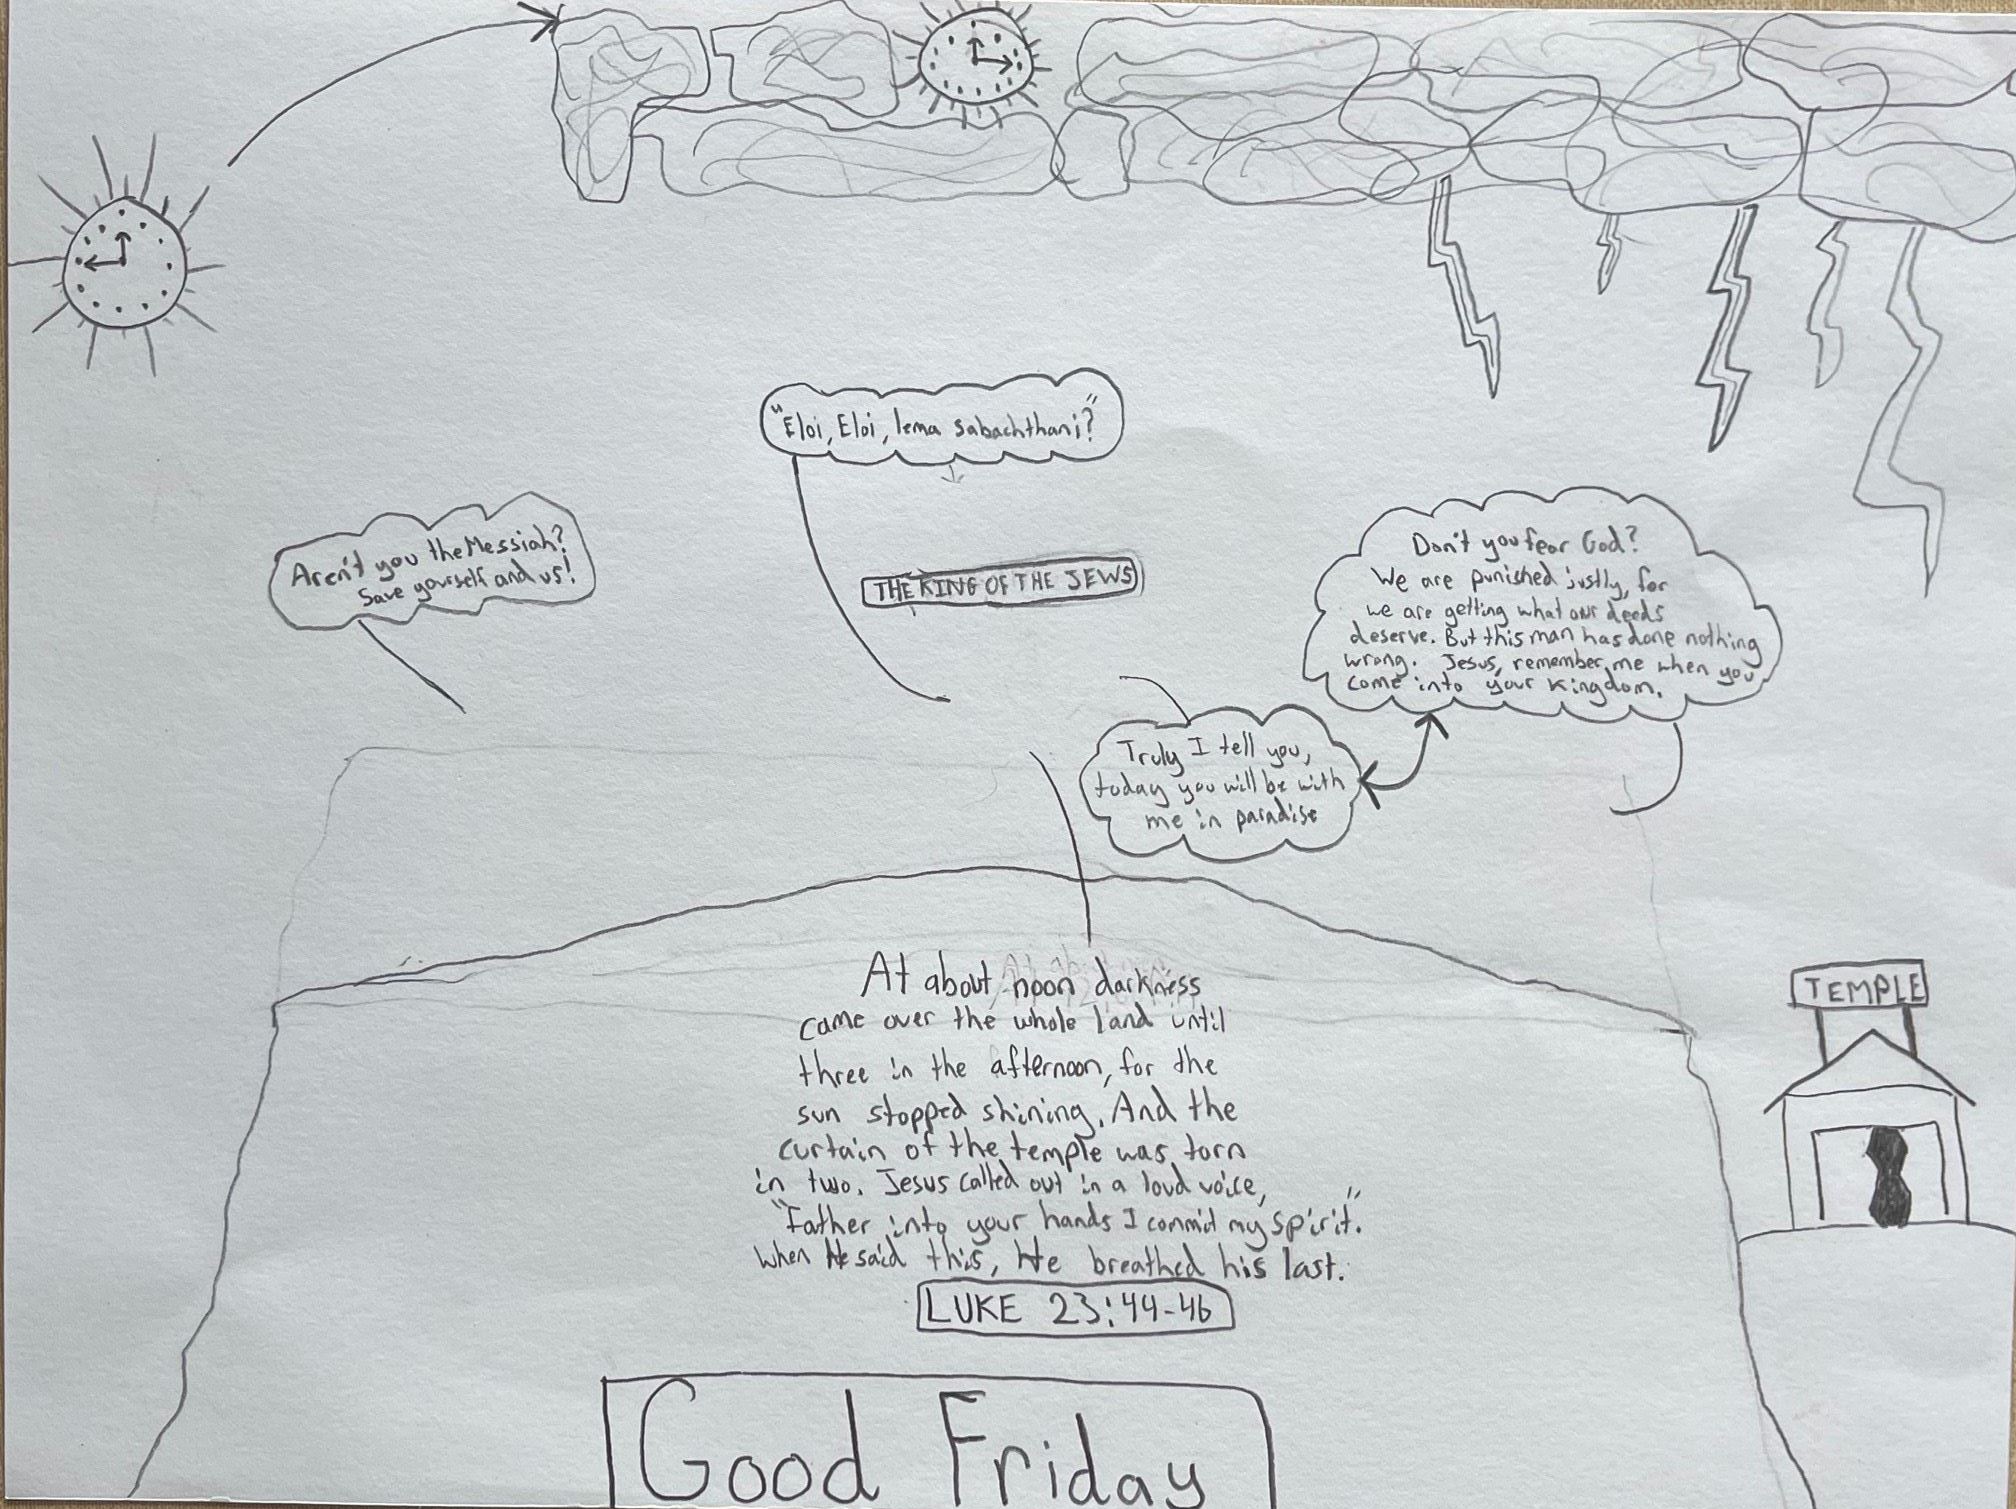 "Eloi, Eloi, lema sabachthani?"
Aren't you the Messiah?
Save yourself and us!
THE KING OF THE JEWS
Don't you fear God?
We are punished justly, for
we are getting what our deeds
deserve. But this man has done nothing
wrong. Jesus, remember me when you
come into your kingdom.
Truly I tell you,
today you will be with
me in paradise
At about noon darkness
came over the whole land until
three in the afternoon, for the
sun stopped shining. And the
curtain of the temple was torn
in two. Jesus called out in a loud voice,
"Father into your hands I commit my spirit."
When He said this, He breathed his last.
LUKE 23:44-46
TEMPLE
Good Friday